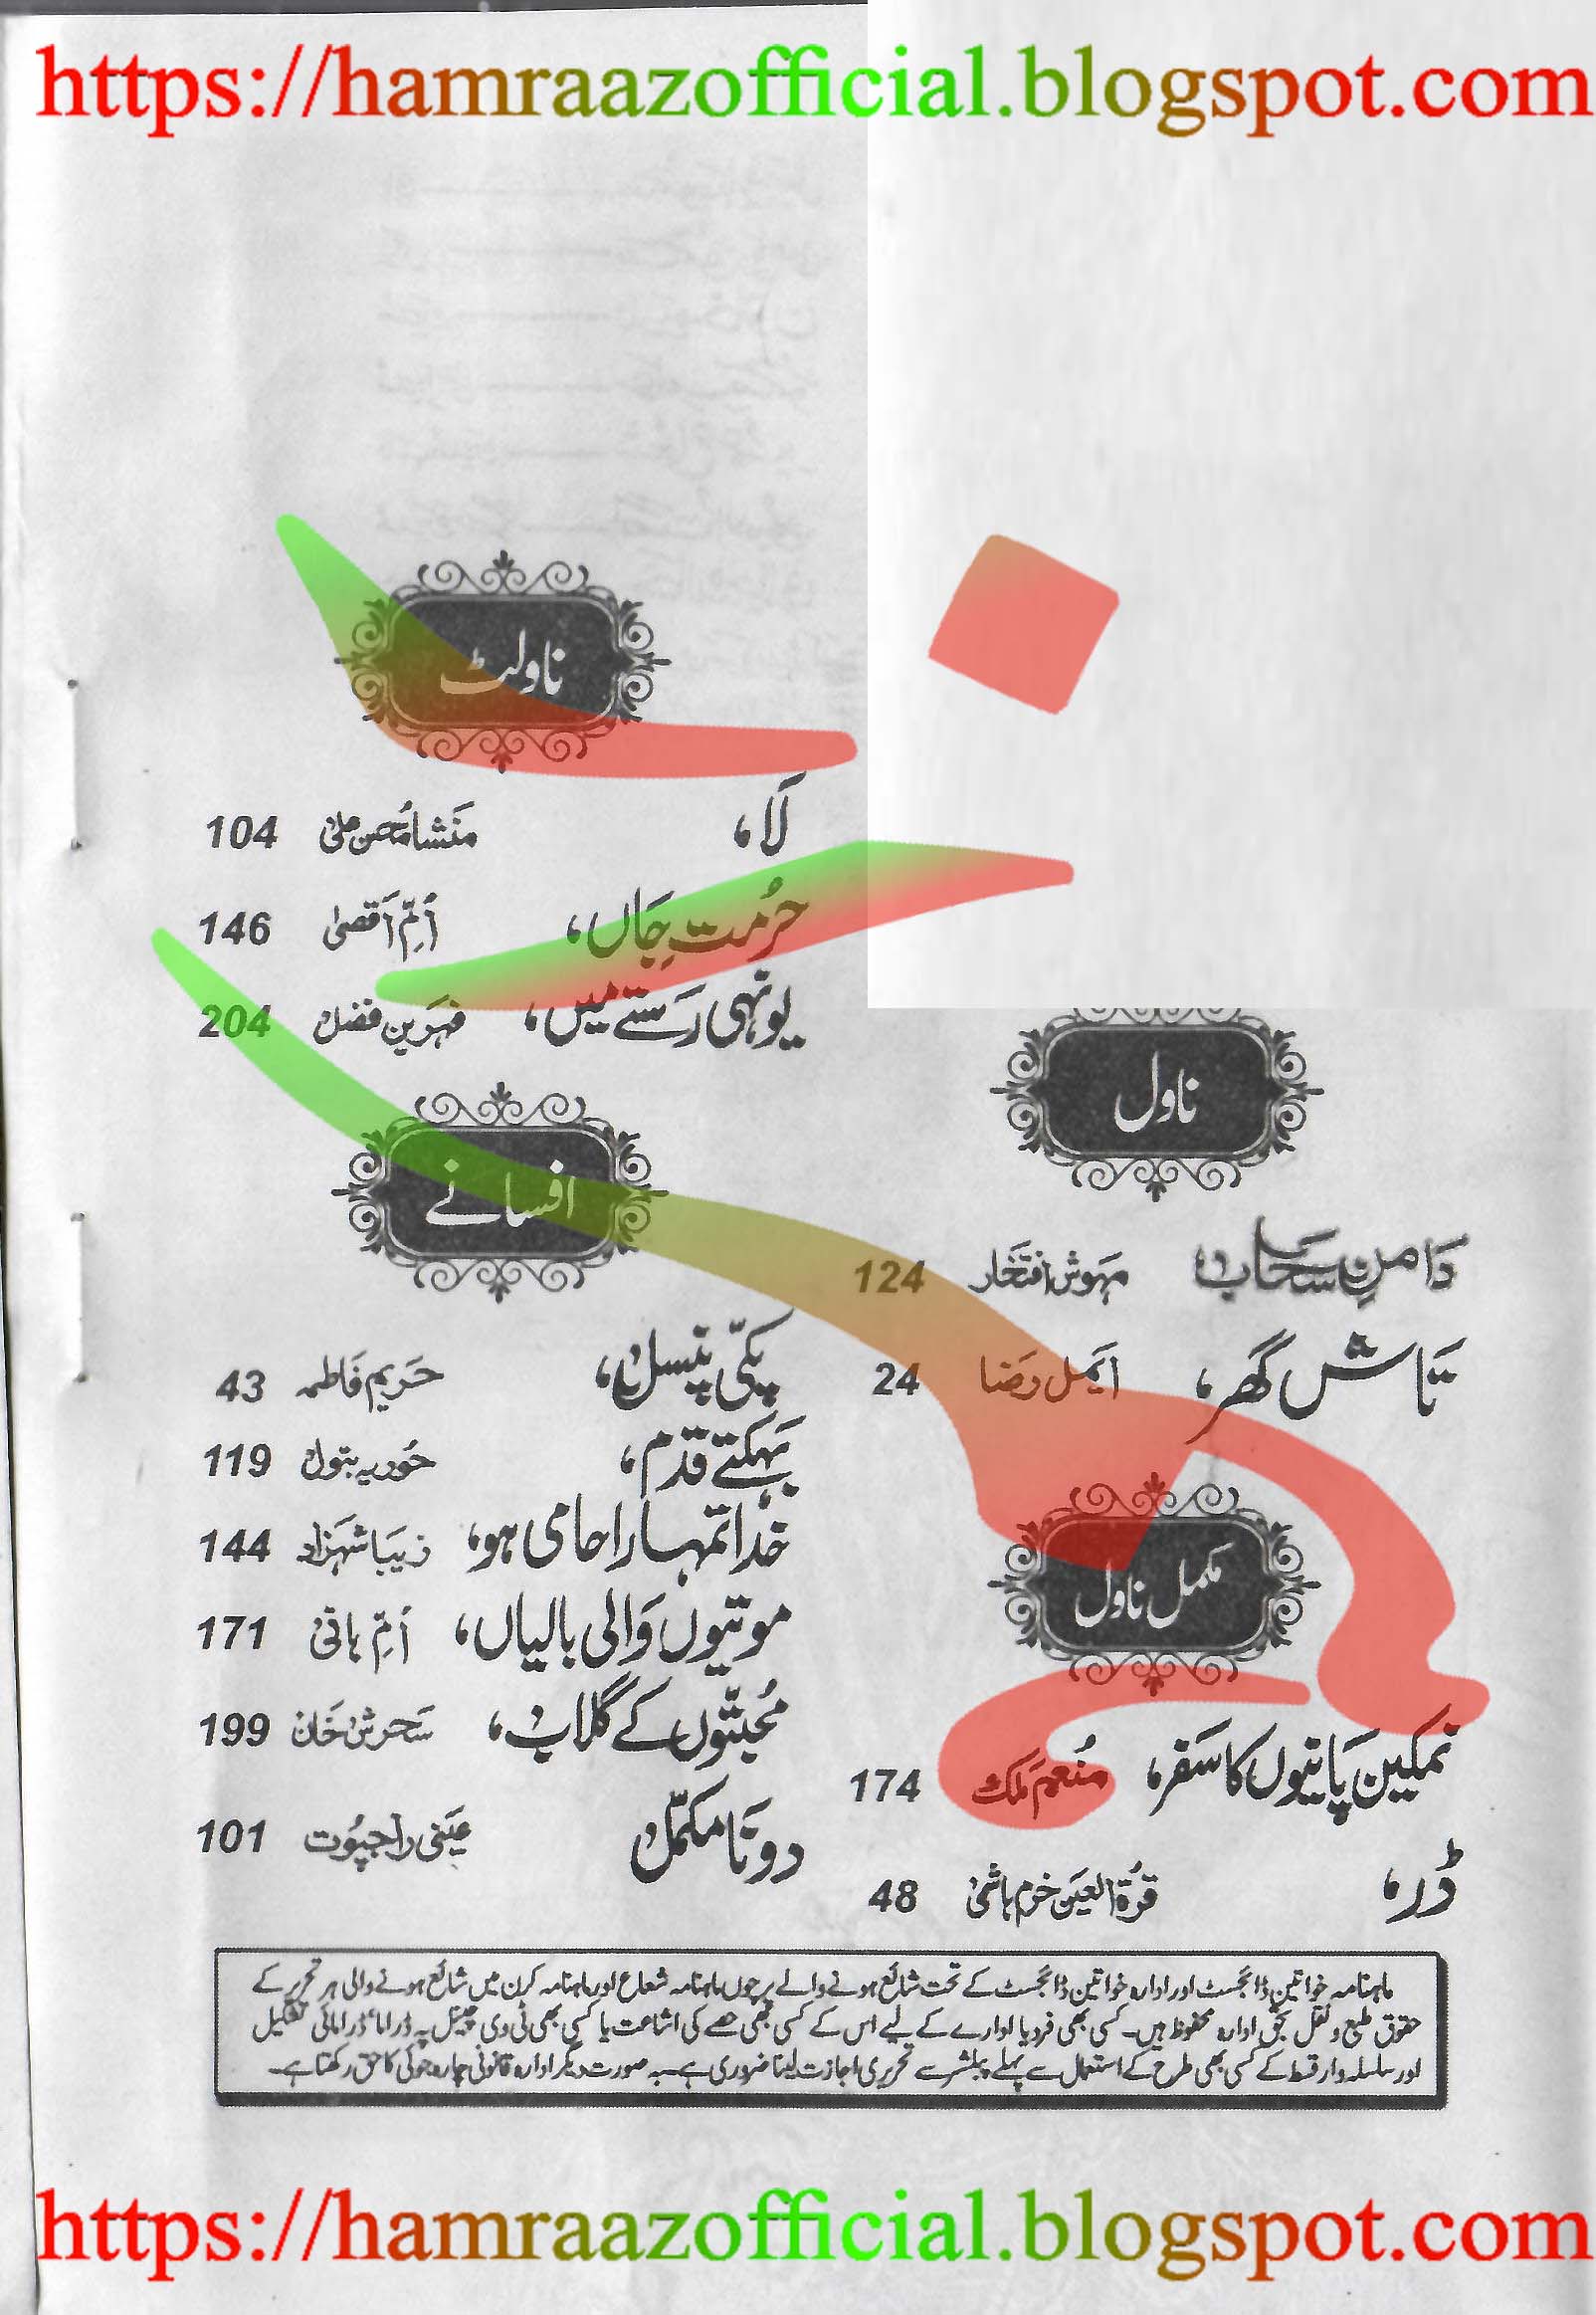 https://hamraazofficial.blogspot.com
ناول
دامنِ سحاب، مہوش افتخار 124
تاش گھر، ایمل رضا 24
مکمل ناول
نمکین پانیوں کا سفر، منعم ملک 174
ڈر، قرۃ العین خرم ہاشمی 48
ناولٹ
لا، منشا محسن علی 104
حرمتِ جاں، اُمِّ اقصیٰ 146
یونہی رستے میں، 204
افسانے
پکی پنسل، حریم فاطمہ 43
بہکتے قدم، حوریہ بتول 119
خدا تمہارا حامی ہو، زیبا شہزاد 144
موتیوں والی بالیاں، اُمِّ ہانی 171
محبتوں کے گلاب، سحرش خان 199
دو نامکمل عینی راجپوت 101
ماہنامہ خواتین ڈائجسٹ اور ادارہ خواتین ڈائجسٹ کے تحت شائع ہونے والے پرچوں ماہنامہ شعاع اور ماہنامہ کرن میں شائع ہونے والی ہر تحریر کے
حقوق طبع و نقل بحق ادارہ محفوظ ہیں۔ کسی بھی فرد یا ادارے کے لیے اس کے کسی بھی حصے کی اشاعت یا کسی بھی ٹی وی چینل پہ ڈراما، ڈرامائی تشکیل
اور سلسلہ وار قسط کے کسی بھی طرح کے استعمال سے پہلے پبلشر سے تحریری اجازت لینا ضروری ہے۔ بہ صورت دیگر ادارہ قانونی چارہ جوئی کا حق رکھتا ہے۔
https://hamraazofficial.blogspot.com